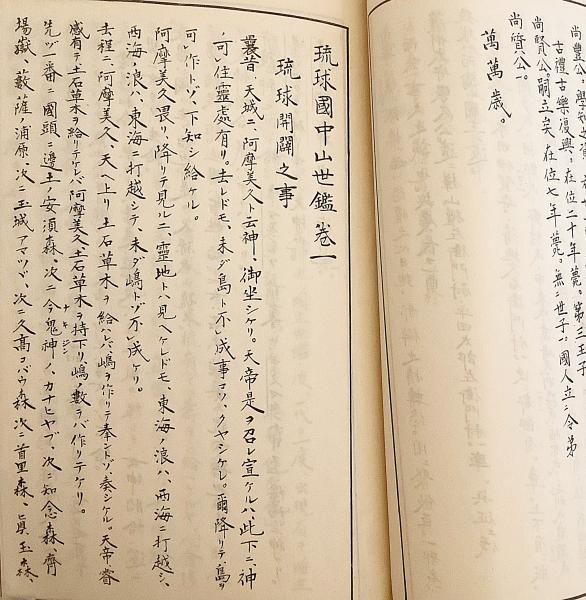 尚豊公。
古禮古樂復興、在位二十年薨。第三王子
尚賢公。嗣立矣。在位七年薨。無二世子一。國人立二令弟
尚質公。
萬萬歳。
琉球國中山世鑑巻一
琉球開闢之事
曩昔、天城ニ、阿摩美久ト云神、御坐シケリ。天帝是ヲ召レ宣ケルハ、此下ニ、神
可レ住靈處有リ。去レドモ、未ダ島ト不レ成事コソ、クヤシケレ。爾降リテ、島ヲ
可レ作トゾ、下知シ給ケル。
阿摩美久畏リ、降リテ見ルニ、靈地トハ見ヘケレドモ、東海ノ浪ハ、西海ニ打越シ、
西海ノ浪ハ、東海ニ打越シテ、未ダ嶋トゾ不レ成ケリ。
去程ニ、阿摩美久、天ヘ上リ、土石草木ヲ給ハレバ、嶋ヲ作リテ奉ントゾ、奏シケル。天帝睿
感有テ、土石草木ヲ給リテケレバ、阿摩美久、土石草木ヲ持下リ、嶋ノ數ヲバ作リテケリ。
先ヅ一番ニ、國頭ニ、邊土ノ安須森、次ニ今鬼神ノ、カナヒヤブ、次ニ知念森、齊
ナキジン
場嶽、藪薩ノ浦原、次ニ玉城アマツヅ、次ニ久高コバウ森、次ニ首里森、眞玉森、